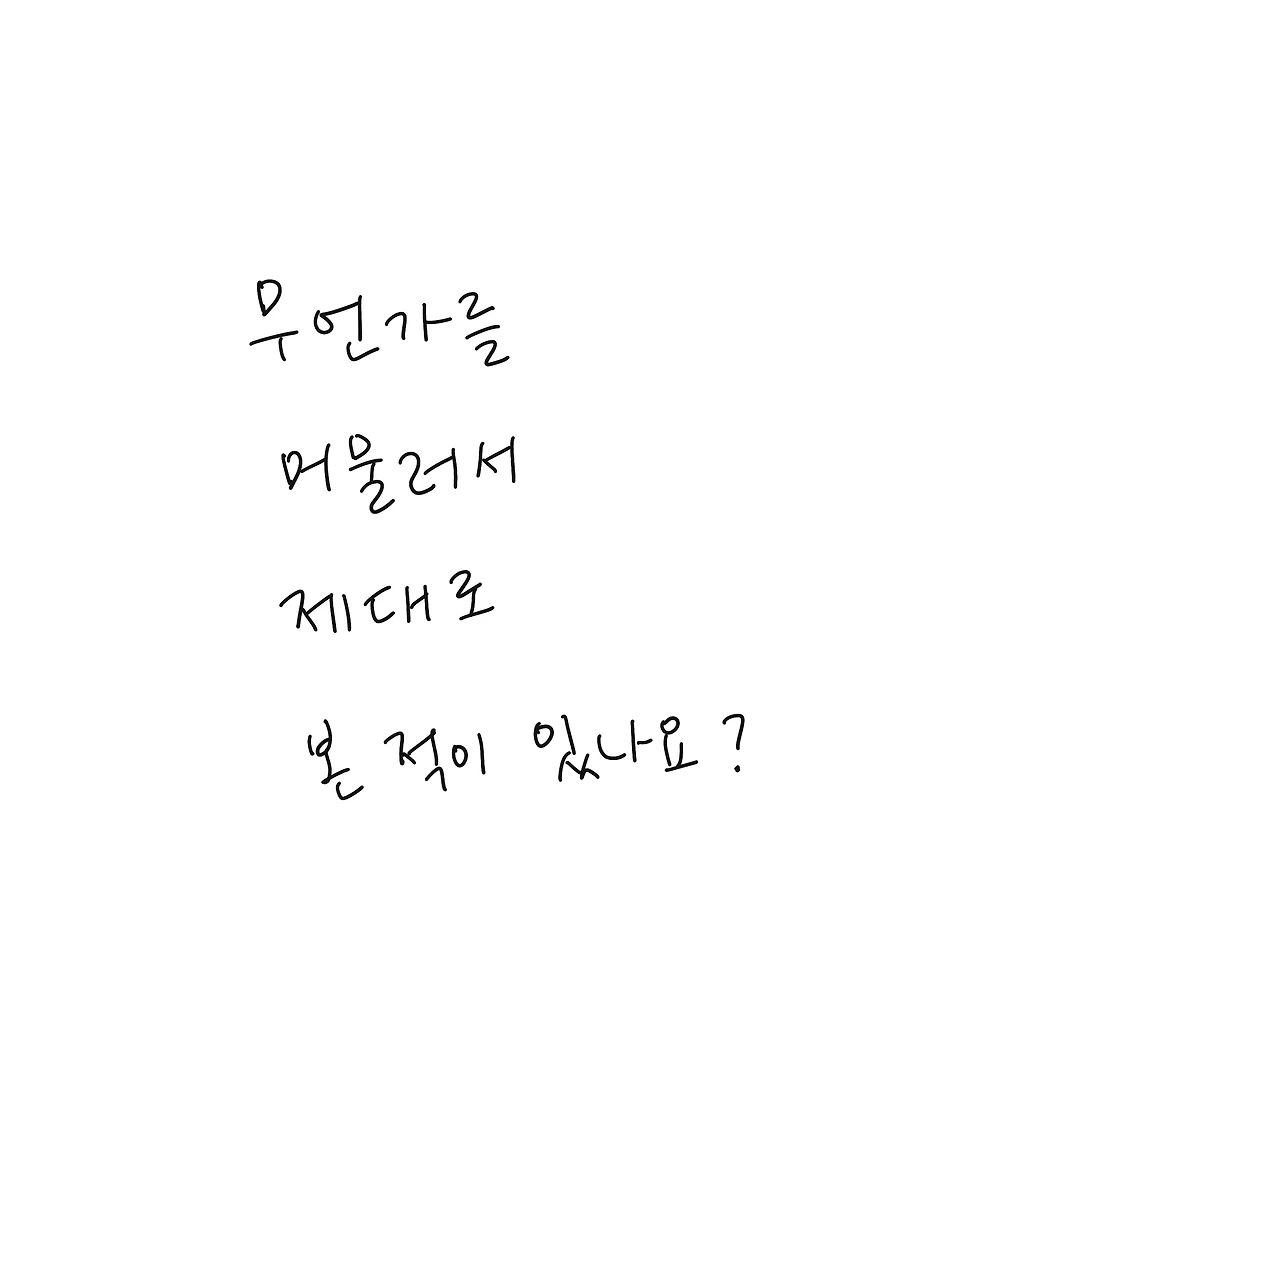 무언가를
머물러서
제대로
본 적이 있나요?